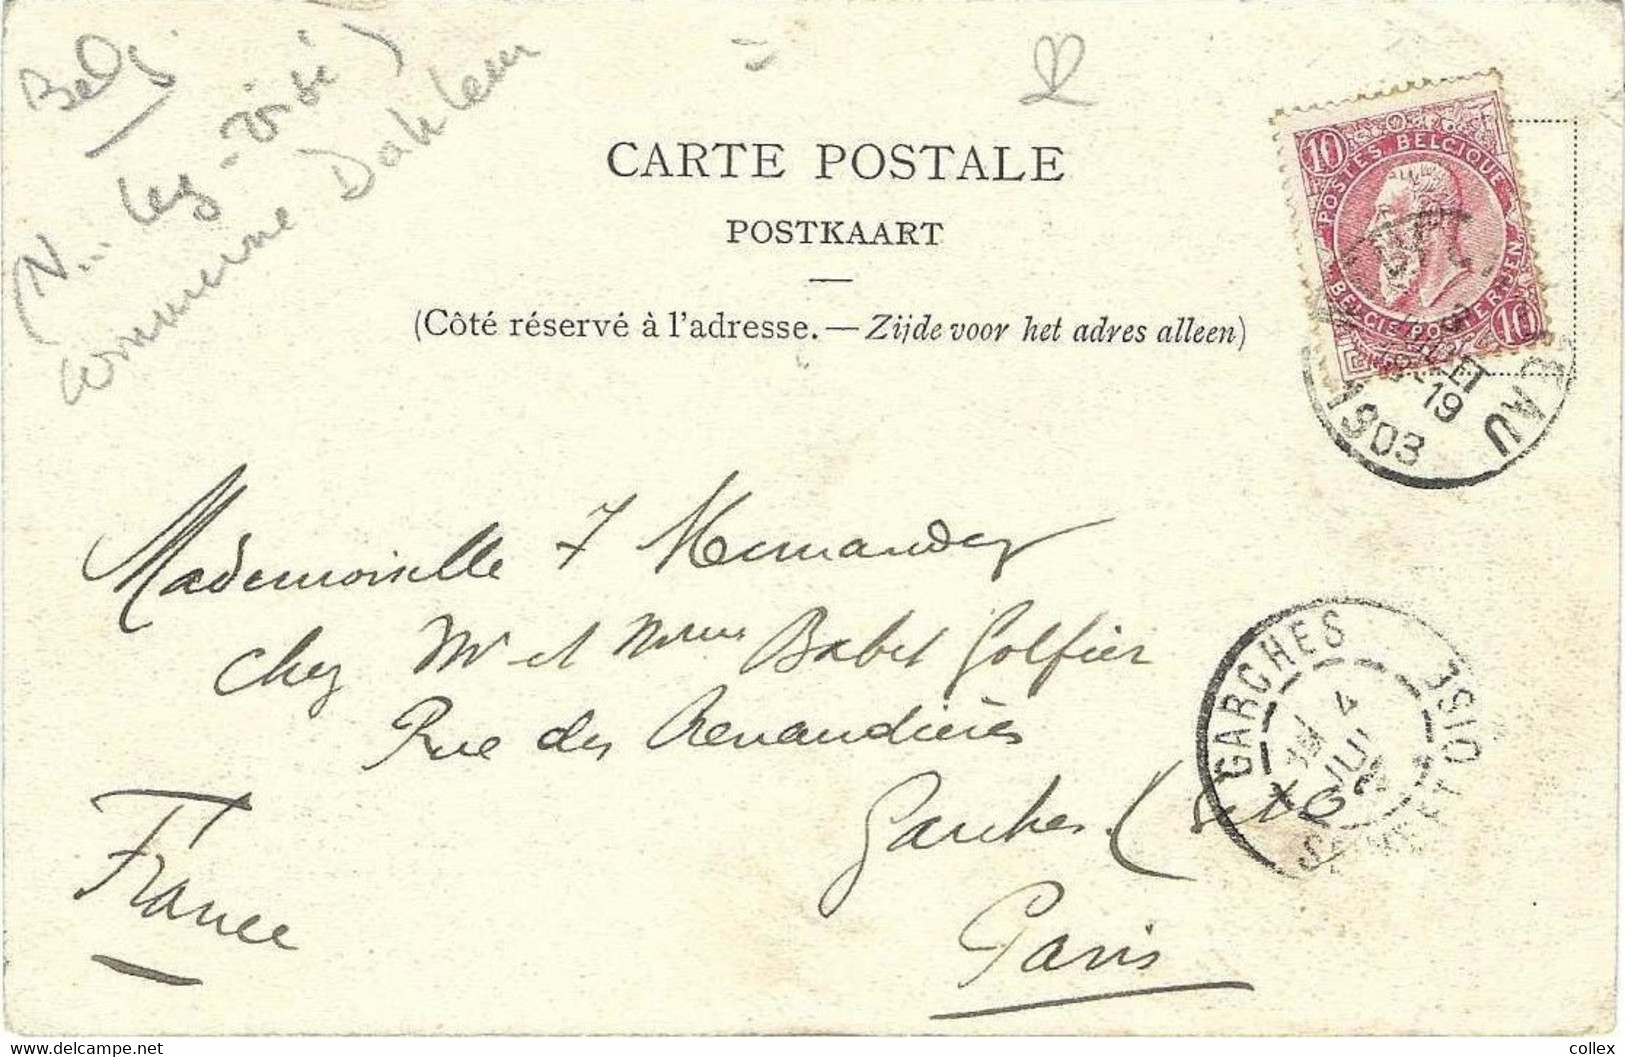 Belg
(N... lez-Visé)
commune Dahlem
CARTE POSTALE
POSTKAART
(Côté réservé à l'adresse.—Zijde voor het adres alleen)
10 POSTES BELGIQUE
BELGIE POSTERIJEN 10
JUILLET
-19
1903
Mademoiselle
chez Mr et Mme Babet Golfier
Rue des
Garches (S et O
Paris
France
GARCHES
4
JUIL
03
SEINE ET OISE
Delcampe.net
collex